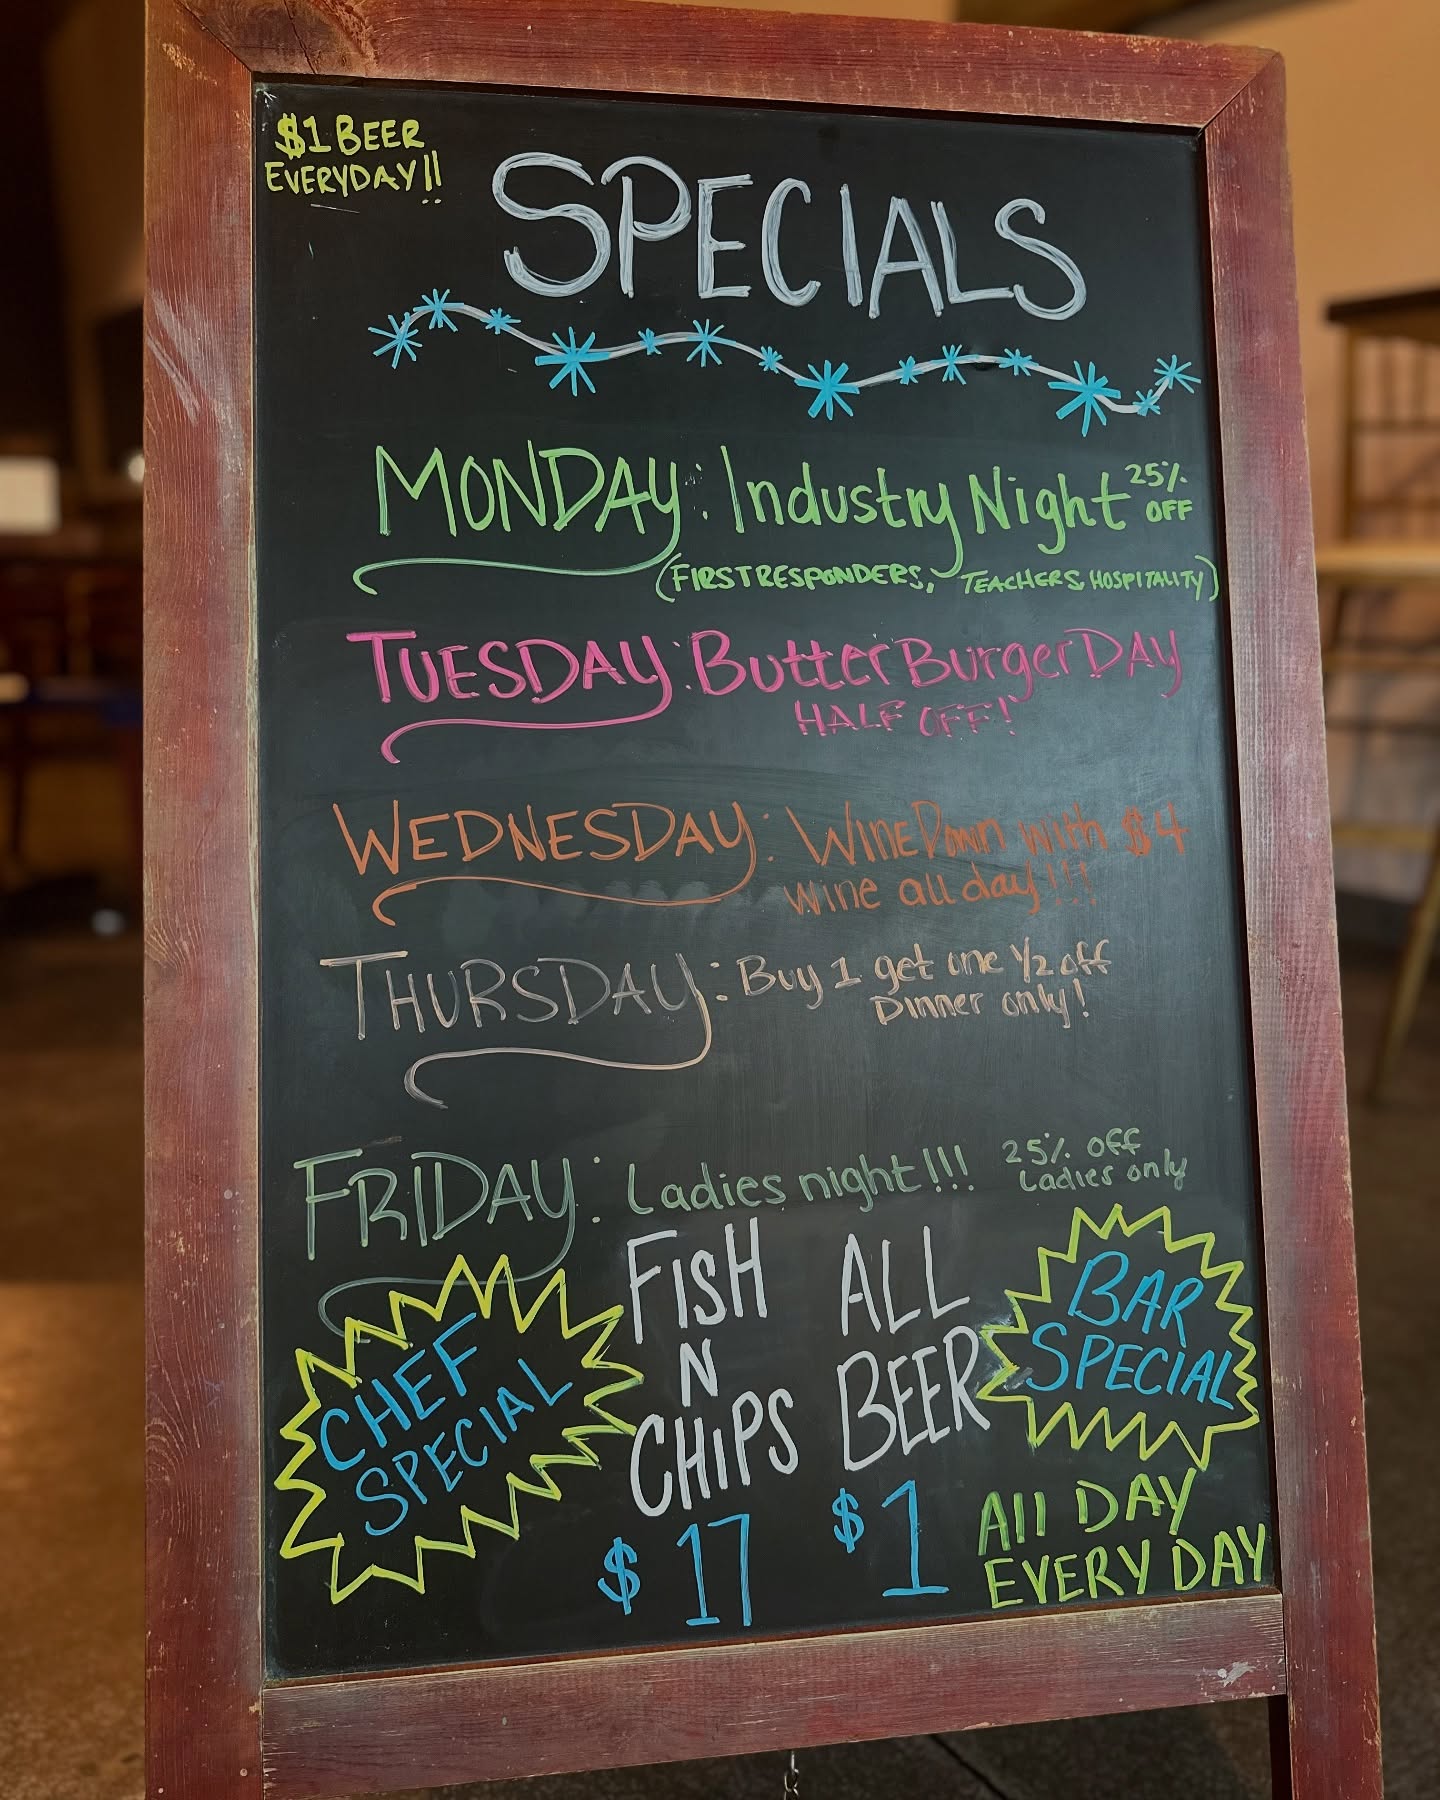 $1 BEER
EVERYDAY!!
SPECIALS
MONDAY: Industry Night 25% OFF
(FIRST RESPONDERS, TEACHERS, HOSPITALITY)
TUESDAY: Butter Burger DAY
HALF OFF!
WEDNESDAY: Wine Down with $4
wine all day!!!
THURSDAY: Buy 1 get one 1/2 off
Dinner only!
FRIDAY: Ladies night!!! 25% off
Ladies only
CHEF
SPECIAL
FISH
N
CHIPS
$17
ALL
BEER
$1
BAR
SPECIAL
All DAY
EVERY DAY